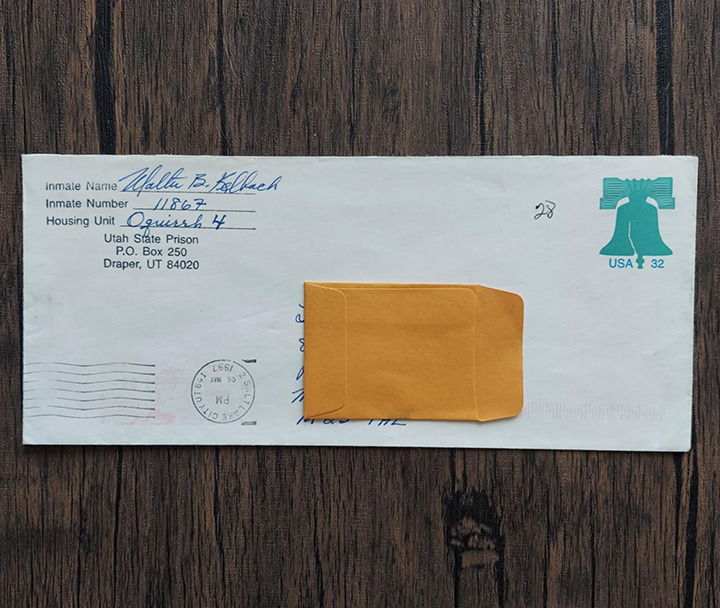 Inmate Name Walter B. Kelbach
Inmate Number 11867
Housing Unit Oquirrh 4
Utah State Prison
P.O. Box 250
Draper, UT 84020
28
USA 32
SALT LAKE CITY UT 841
PM
06 MAY
1997